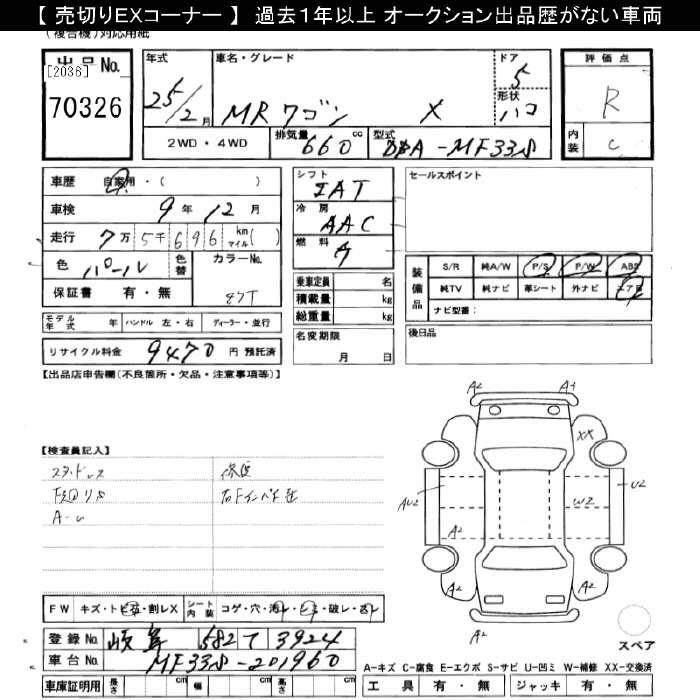 【 売切りＥＸコーナー 】 過去１年以上 オークション出品歴がない車両
(複合機)対応用紙
出品No. [2036] 70326
年式 25/2月
車名・グレード MRワゴン X
ドア 5
形状 ハコ
評価点 R
内装 C
2WD・4WD
排気量 660cc
型式 DBA-MF33S
車歴 自家用・( )
車検 9年12月
走行 7万5千696 km マイル( )
色 パール 色替
カラーNo. Z7T
保証書 有・無
シフト IAT
冷房 AAC
燃料 G
乗車定員 名
積載量 kg
総重量 kg
名変期限 月 日
セールスポイント
装備品 S/R 純A/W P/S P/W ABS
純TV 純ナビ 革シート 外ナビ エアB
ナビ型番：
後日品
モデル年式 年 ハンドル 左・右 ディーラー・並行
リサイクル料金 9470 円 預託済
【出品店申告欄(不良箇所・欠品・注意事項等)】
【検査員記入】
スタッドレス
下廻りS
修復
A-U
A2 A3
XX
AU2 U2
W2
A2
A2 A2
A2
スペア
FW キズ・トビ石・割レX シート内装 コゲ・穴・汚レ・シミ・破レ・スレ
登録No. 岐阜 582 て 3924
車台No. MF33S-201960
車庫証明用 長さ cm 幅 cm 高さ cm
A-キズ C-腐食 E-エクボ S-サビ U-凹ミ W-補修 XX-交換済
工具 有・無 ジャッキ 有・無